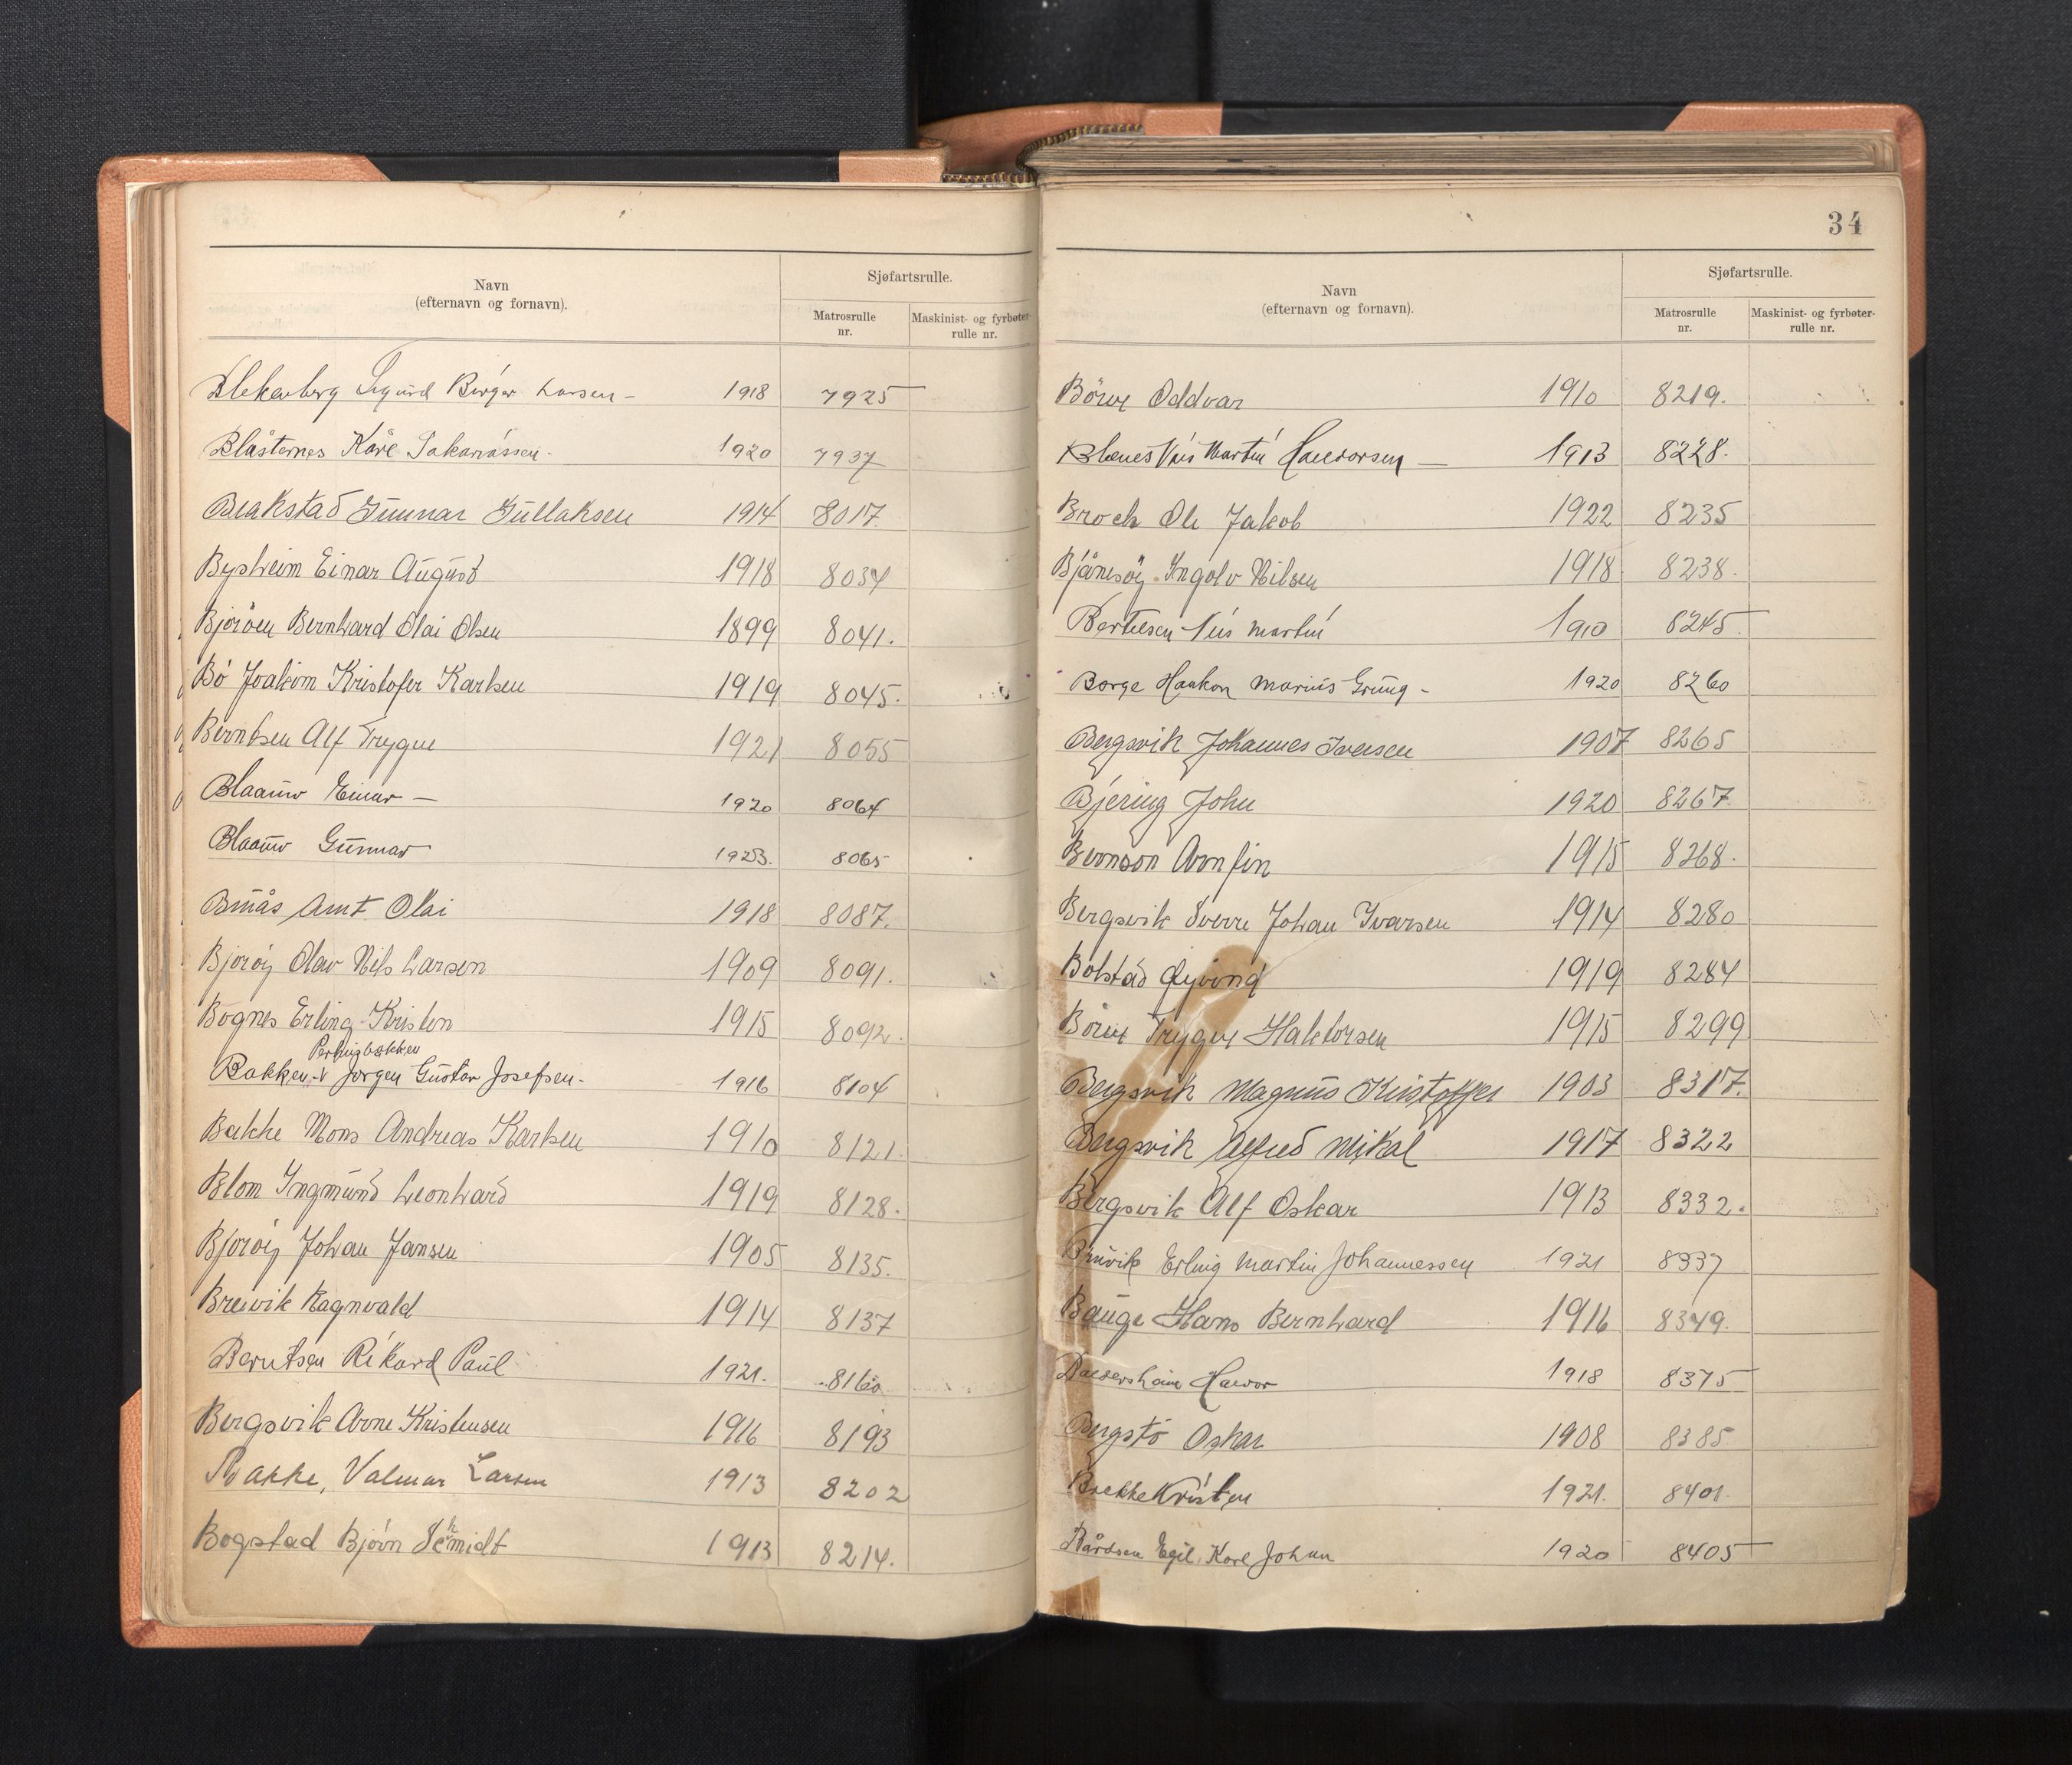 Navn
(efternavn og fornavn).
Sjøfartsrulle.
Matrosrulle
nr.
Maskinist- og fyrbøter-
rulle nr.
Sigurd Birger Larsen - 1918 7925
Kåre Sakariassen. 1920 7937
Brakstad Gunnar Gullaksen 1914 8017
Bysheim Einar August 1918 8034
Bjoröen Bernhard Olai Olsen 1899 8041.
Bö Joakim Kristofer Karlsen 1919 8045.
Berntsen Alf Trygve 1921 8055
Blaauw Einar — 1920 8064
Blaauw Gunnar 1923. 8065
Olai 1918 8087.
Bjoröy Olav Nils Larsen 1909 8091.
Bognes Erling Kristen 1915 8092.
Bakken Jørgen Gustav Josefsen - 1916 8104
Bakke Mons Andreas Karlsen 1910 8121.
Blom Ingmund Leonhard 1919 8128.
Bjoröy Johan Jansen 1905 8135.
Breivik Ragnvald 1914 8137
Berntsen Rikard Paul 1921. 8160
Bergsvik Arne Kristensen 1916 8193
Bakke, Valmar Larsen 1913 8202
Bogstad Bjørn Schmidt 1913 8214.
34
Navn
(efternavn og fornavn).
Sjøfartsrulle.
Matrosrulle
nr.
Maskinist- og fyrbøter-
rulle nr.
Börve Oddvar 1910 8219.
Martin Haldorsen — 1913 8228.
Broch Ole Jakob 1922 8235
Bjånesöy Ingolv Nilsen 1918 8238.
Bertelsen Nils Martin 1910 8245.
Borge Haakon Marius Grung - 1920 8260
Bergsvik Johannes Iversen 1907 8265
Bjering John 1920 8267.
Bernson Arnfin 1915 8268.
Bergsvik Sverre Johan Ivarsen 1914 8280
Bolstad Øyvind 1919 8284
Börve Trygve Haktorsen 1915 8299
Bergsvik Magnus Kristoffer 1903 8317.
Bergsvik Alfred Mikal 1917 8322
Bergsvik Alf Oskar 1913 8332.
Bruvik Erling Martin Johannessen 1921 8337
Bauge Hans Bernhard 1916 8349.
Baldersheim Halvor 1918 8375
Bergstö Oskar 1908 8385
Brekke Kristen 1921. 8401.
Bårdsen Egil Karl Johan 1920 8405